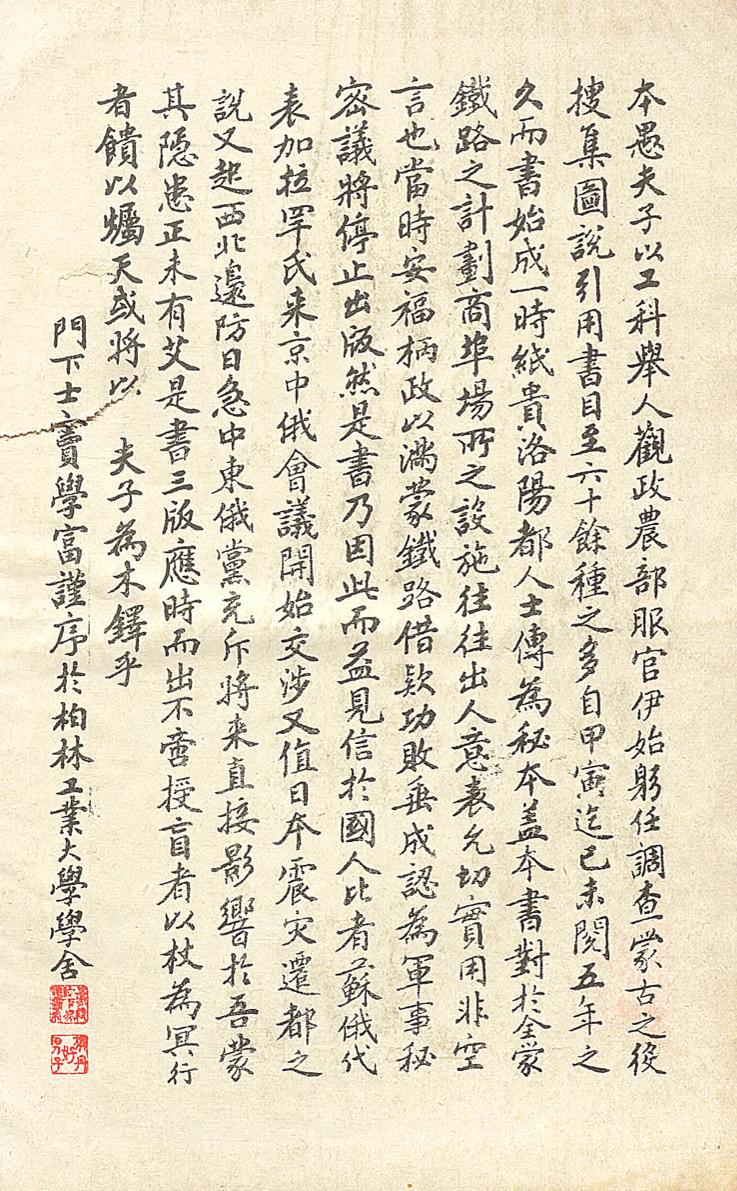 本愚夫子以工科舉人觀政農部服官伊始躬任調查蒙古之役
搜集圖說引用書目至六十餘種之多自甲寅迄己未閱五年之
久而書始成一時紙貴洛陽都人士傳為秘本蓋本書對於全蒙
鐵路之計劃商埠場所之設施往往出人意表允切實用非空
言也當時安福柄政以滿蒙鐵路借款功敗垂成認為軍事秘
密議將停止出版然是書乃因此而益見信於國人比者蘇俄代
表加拉罕氏來京中俄會議開始交涉又值日本震災遷都之
說又起西北邊防日急中東俄黨充斥將來直接影響於吾蒙
其隱患正未有艾是書三版應時而出不啻授盲者以杖為冥行
者饋以燭天或將以 夫子為木鐸乎
門下士竇學富謹序於柏林工業大學學舍